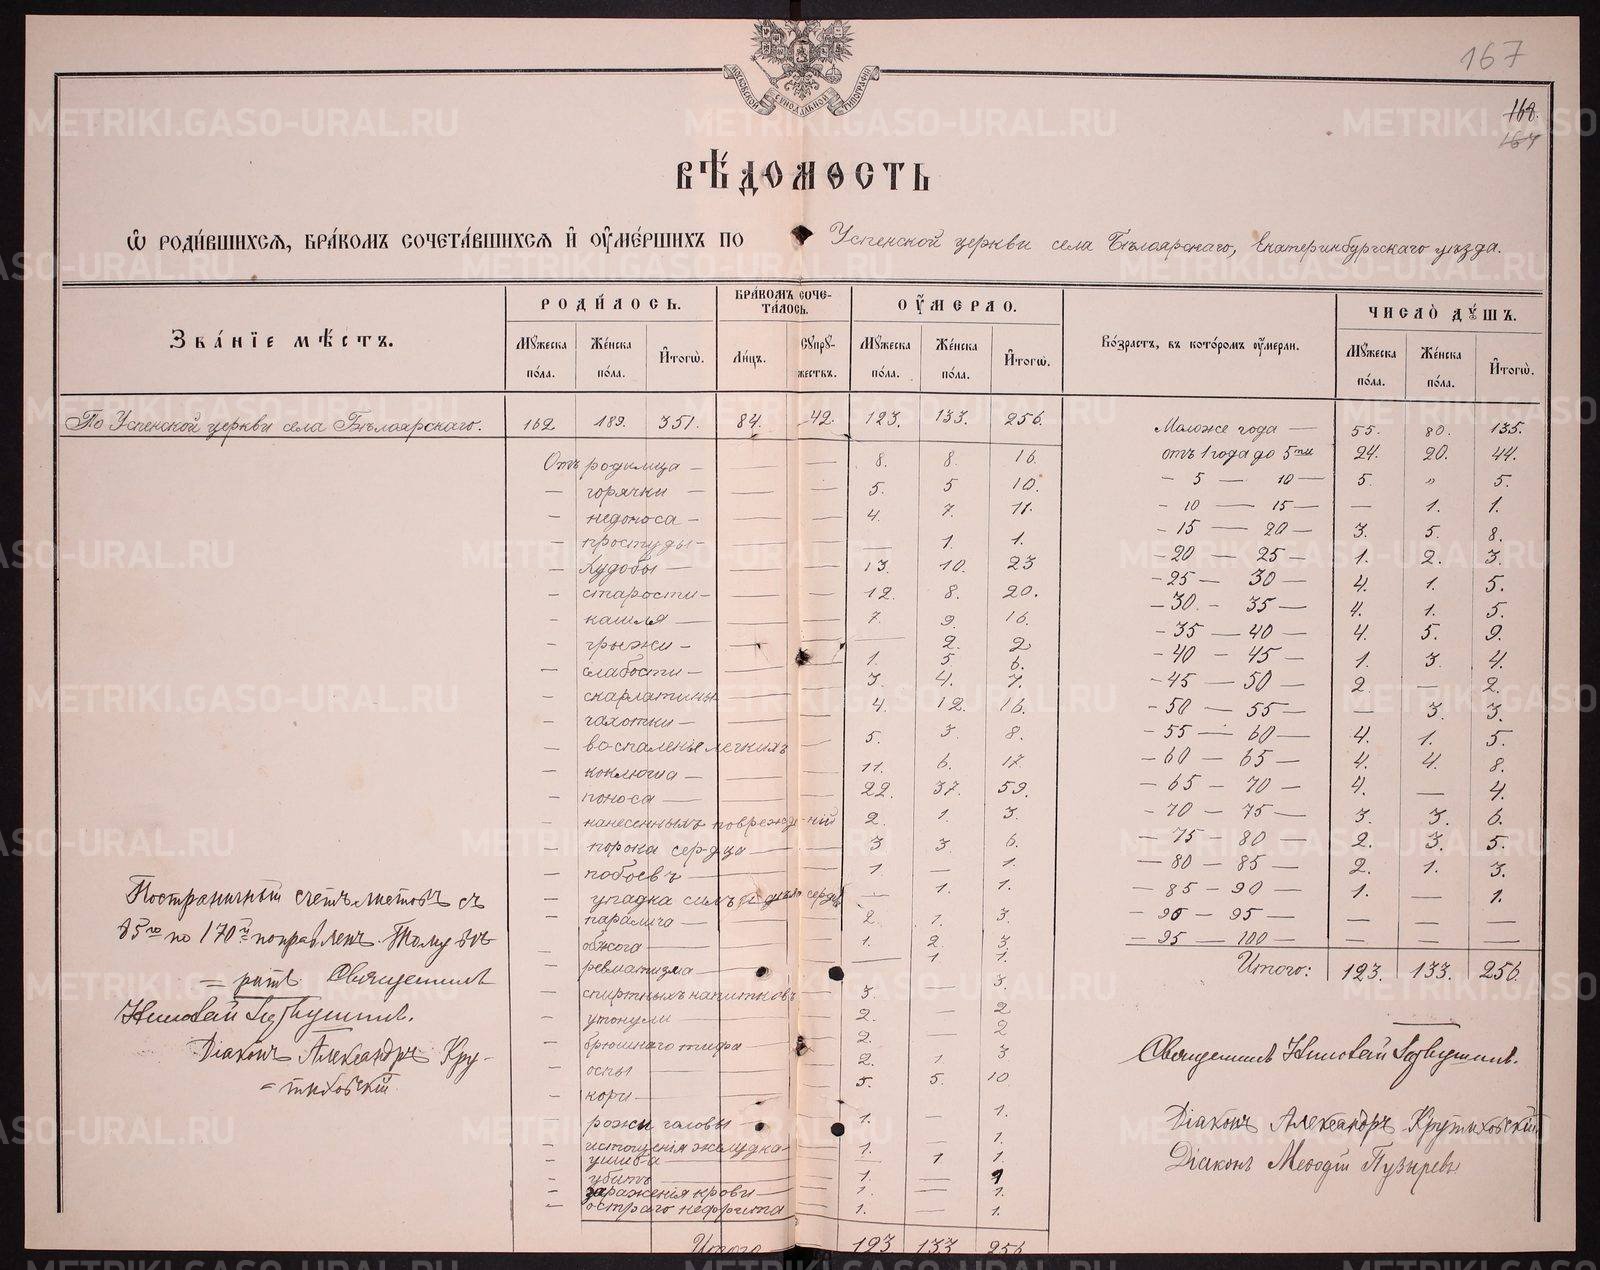 167
168.
167
МОСКОВСКОЙ СѴНОДАЛЬНОЙ ТИПОГРАФІИ
ВѢ́ДОМОСТЬ
Ѡ҆ РОДИ́ВШИХСѦ, БРА́КОМЪ СОЧЕТА́ВШИХСѦ И҆ ОУ҆МЕ́РШИХЪ ПО Успенской церкви села Бѣлоярскаго, Екатеринбургскаго уѣзда.
Зва́нїе мѣ́стъ. РОДИ́ЛОСЬ. БРА́КОМЪ СОЧЕТА́ЛОСЬ. ОУ҆́МЕРЛО. Во́зрастъ, въ кото́ромъ оу҆́мерли. ЧИСЛО̀ ДꙊ́ШЪ.
Мꙋ́жеска по́ла. Же́нска по́ла. И҆того̀. Ли́цъ. Сꙋпрꙋ́жествъ. Мꙋ́жеска по́ла. Же́нска по́ла. И҆того̀. Мꙋ́жеска по́ла. Же́нска по́ла. И҆того̀.
По Успенской церкви села Бѣлоярскаго. 162 189. 351. 84. 42. 123. 133. 256. Моложе года — 55. 80. 135.
Отъ родимца — 8. 8. 16. отъ 1 года до 5ти 24. 20. 44.
— горячки — 5. 5 10. — 5 — 10 — 5. „ 5.
— недоноса — 4. 7. 11. — 10 — 15 — — 1. 1.
— простуды — — 1. 1. — 15 — 20 — 3. 5. 8.
— худобы — 13. 10. 23 — 20 — 25 — 1. 2. 3.
— старости — 12. 8. 20. — 25 — 30 — 4. 1. 5.
— кашля — 7. 9. 16. — 30 — 35 — 4. 1. 5.
— грыжи — — 2. 2 — 35 — 40 — 4. 5. 9.
— слабости — 1. 5. 6. — 40 — 45 — 1. 3. 4.
— скарлатины 3. 4. 7. — 45 — 50 — 2. — 2.
— чахотки — 4. 12. 16. — 50 — 55 — — 3. 3.
— воспаленія легкихъ — 5. 3. 8. — 55 — 60 — 4. 1. 5.
— коклюша — 11. 6. 17. — 60 — 65 — 4. 4. 8.
— поноса — 22. 37. 59. — 65 — 70 — 4. — 4.
— нанесенныхъ поврежденій 2. 1. 3. — 70 — 75 — 3. 3. 6.
— порока сердца — 3 3 6. — 75 80 2. 3. 5.
— побоевъ 1 — 1. — 80 — 85 — 2. 1. 3.
— упадка силъ — 1. 1. — 85 — 90 — 1. — 1.
— паралича — 2. 1. 3. — 90 — 95 — — — —
— обжога — 1. 2. 3. — 95 — 100 — — — —
— ревматизма — — 1 1. Итого: 123. 133. 256.
— спиртныхъ напитковъ 3. — 3.
— утонули — 2. — 2
— брюшнаго тифа — 2. — 2
— оспы 2. 1 3
— кори — 5. 5. 10
— рожи головы — 1. — 1.
— истощенія желудка 1. — 1.
— ушиба — — 1 1.
— убитъ 1. — 1
— зараженія крови — 1. — 1.
— остраго нефрита 1. — 1.
Итого 123 133 256
Постраничный счетъ листовъ съ
85го по 170й поправленъ. Тому вѣ-
=рить. Священникъ
Николай
Діаконъ Александръ Кру-
=тиховскій
Священникъ Николай
Діаконъ Александръ Крутиховскій
Діаконъ Меѳодій Пузыревъ
METRIKI.GASO-URAL.RU